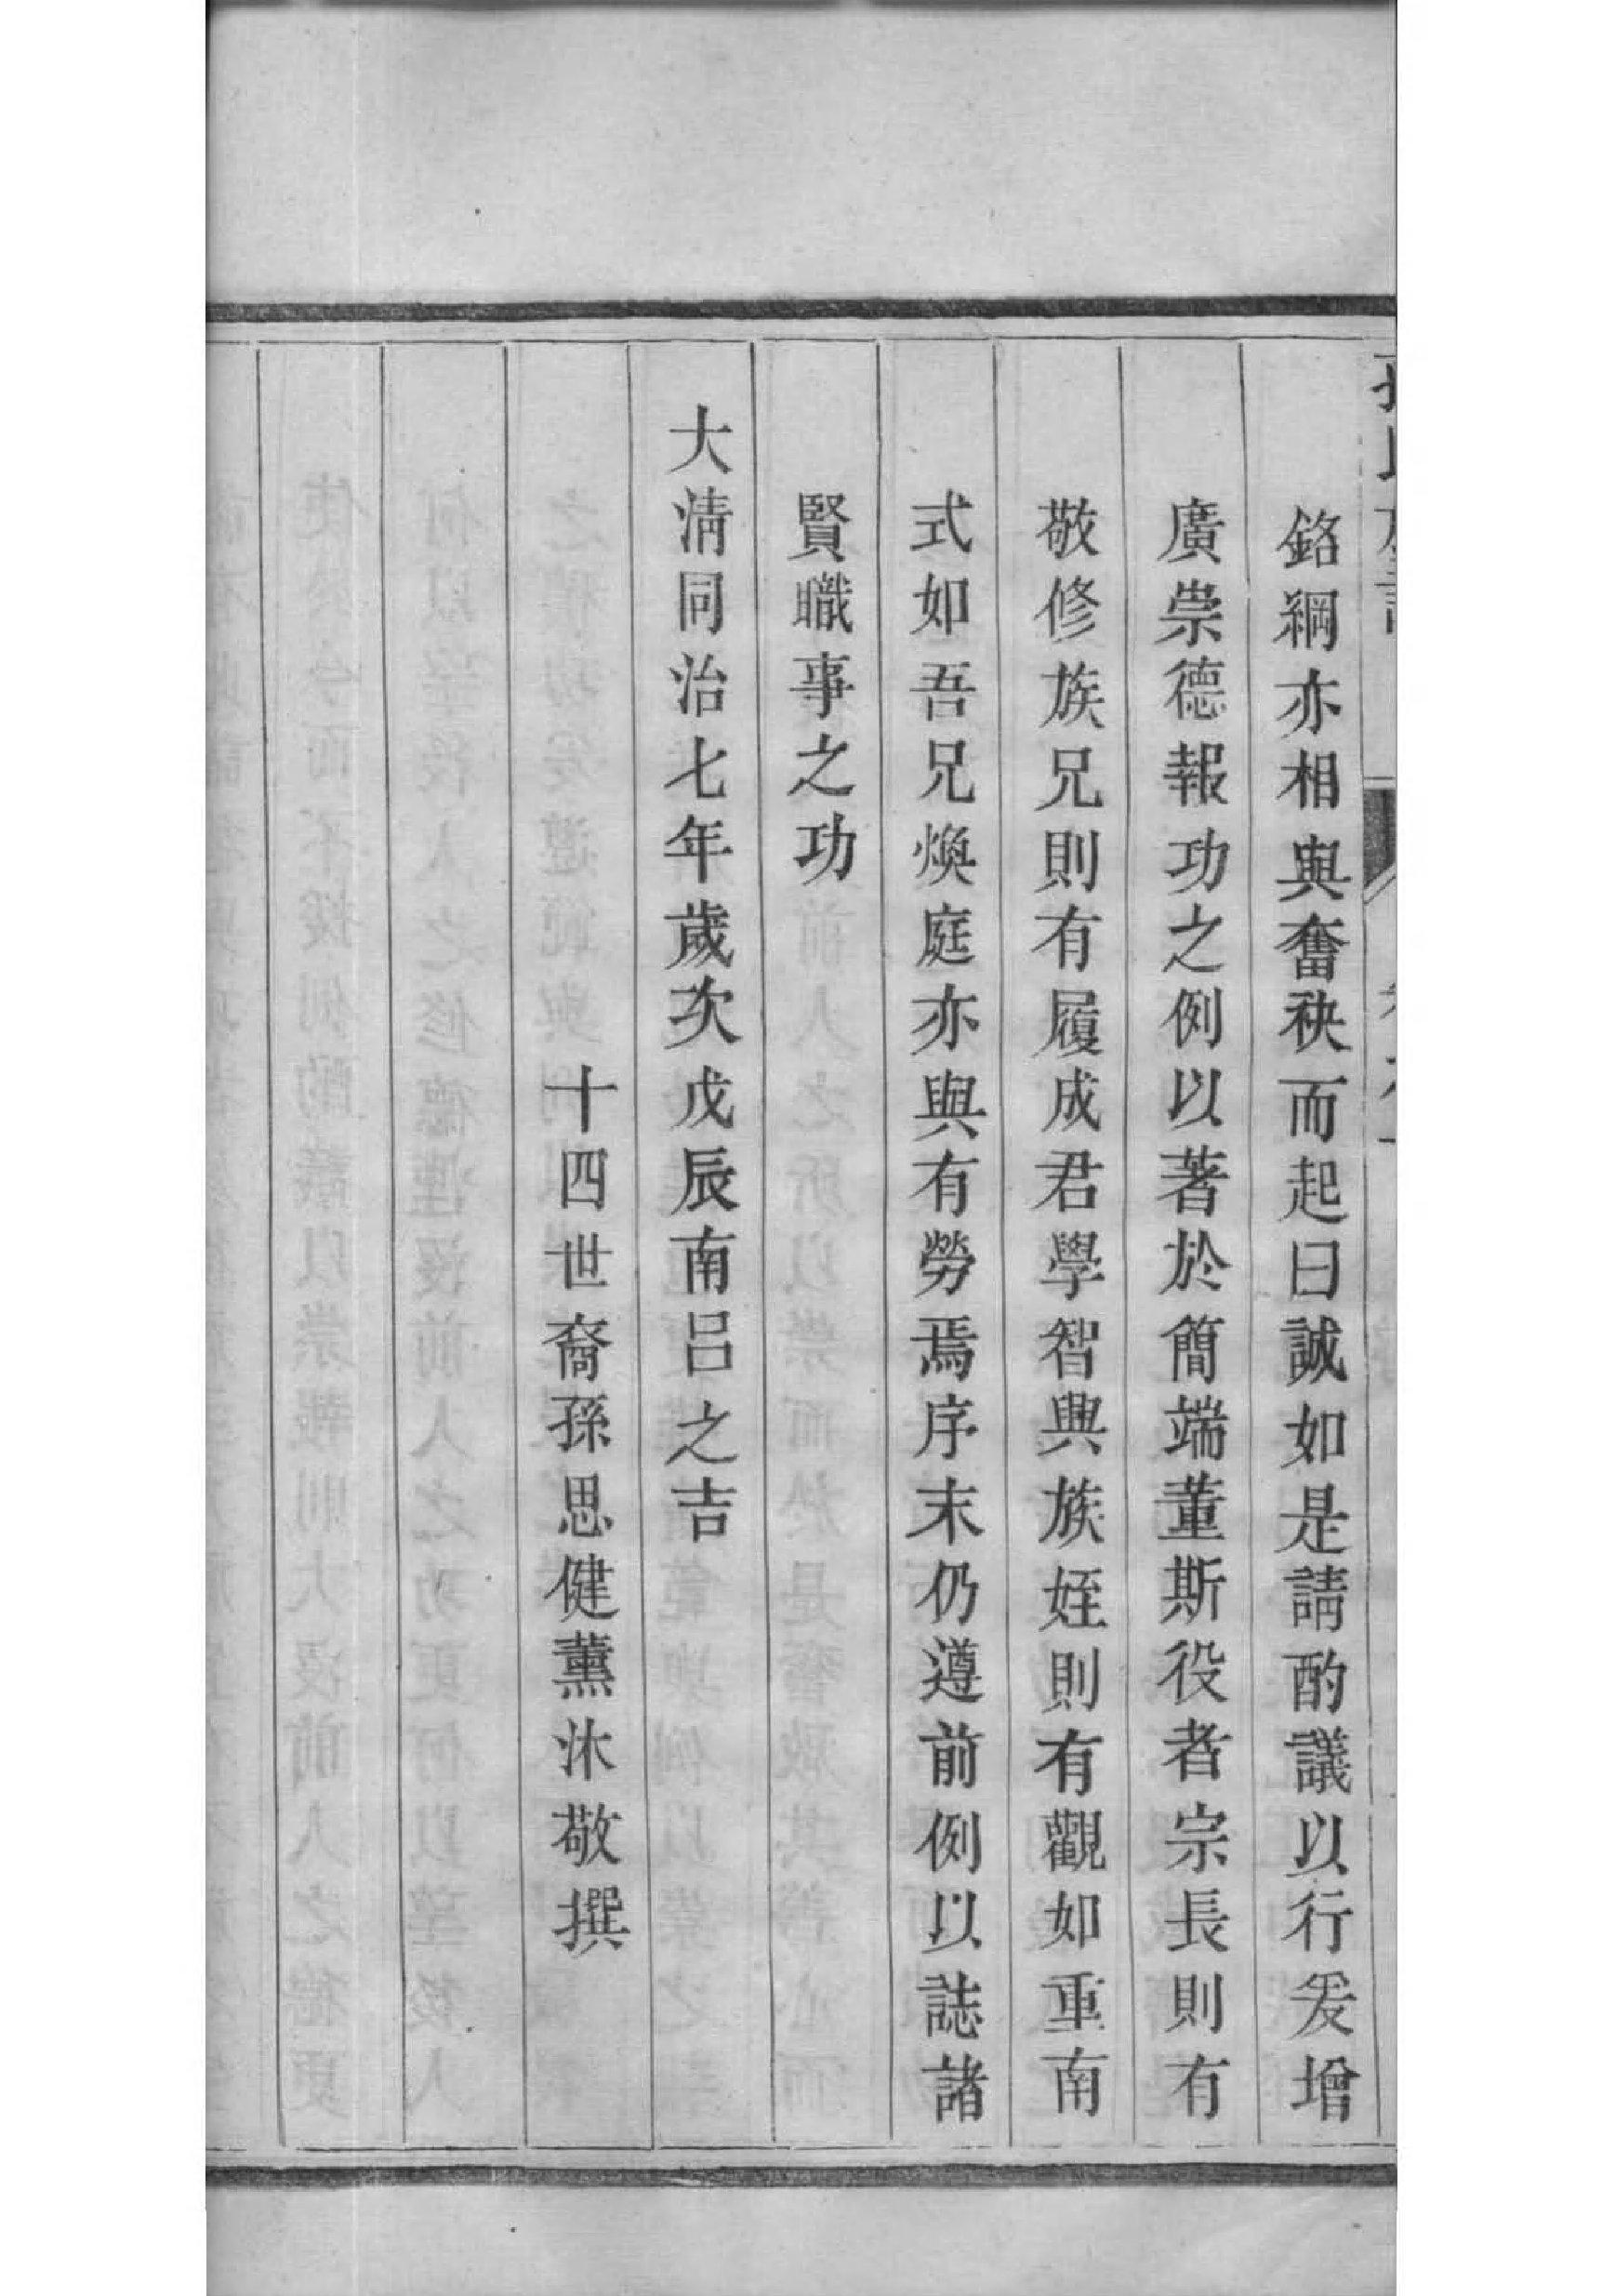 銘綱亦相與奮袂而起曰誠如是請酌議以行爰增
廣崇德報功之例以著於簡端董斯役者宗長則有
敬修族兄則有履成君學智與族姪則有觀如重南
式如吾兄煥庭亦與有勞焉序末仍遵前例以誌諸
賢職事之功
大清同治七年歲次戊辰南呂之吉
十四世裔孫思健薰沐敬撰